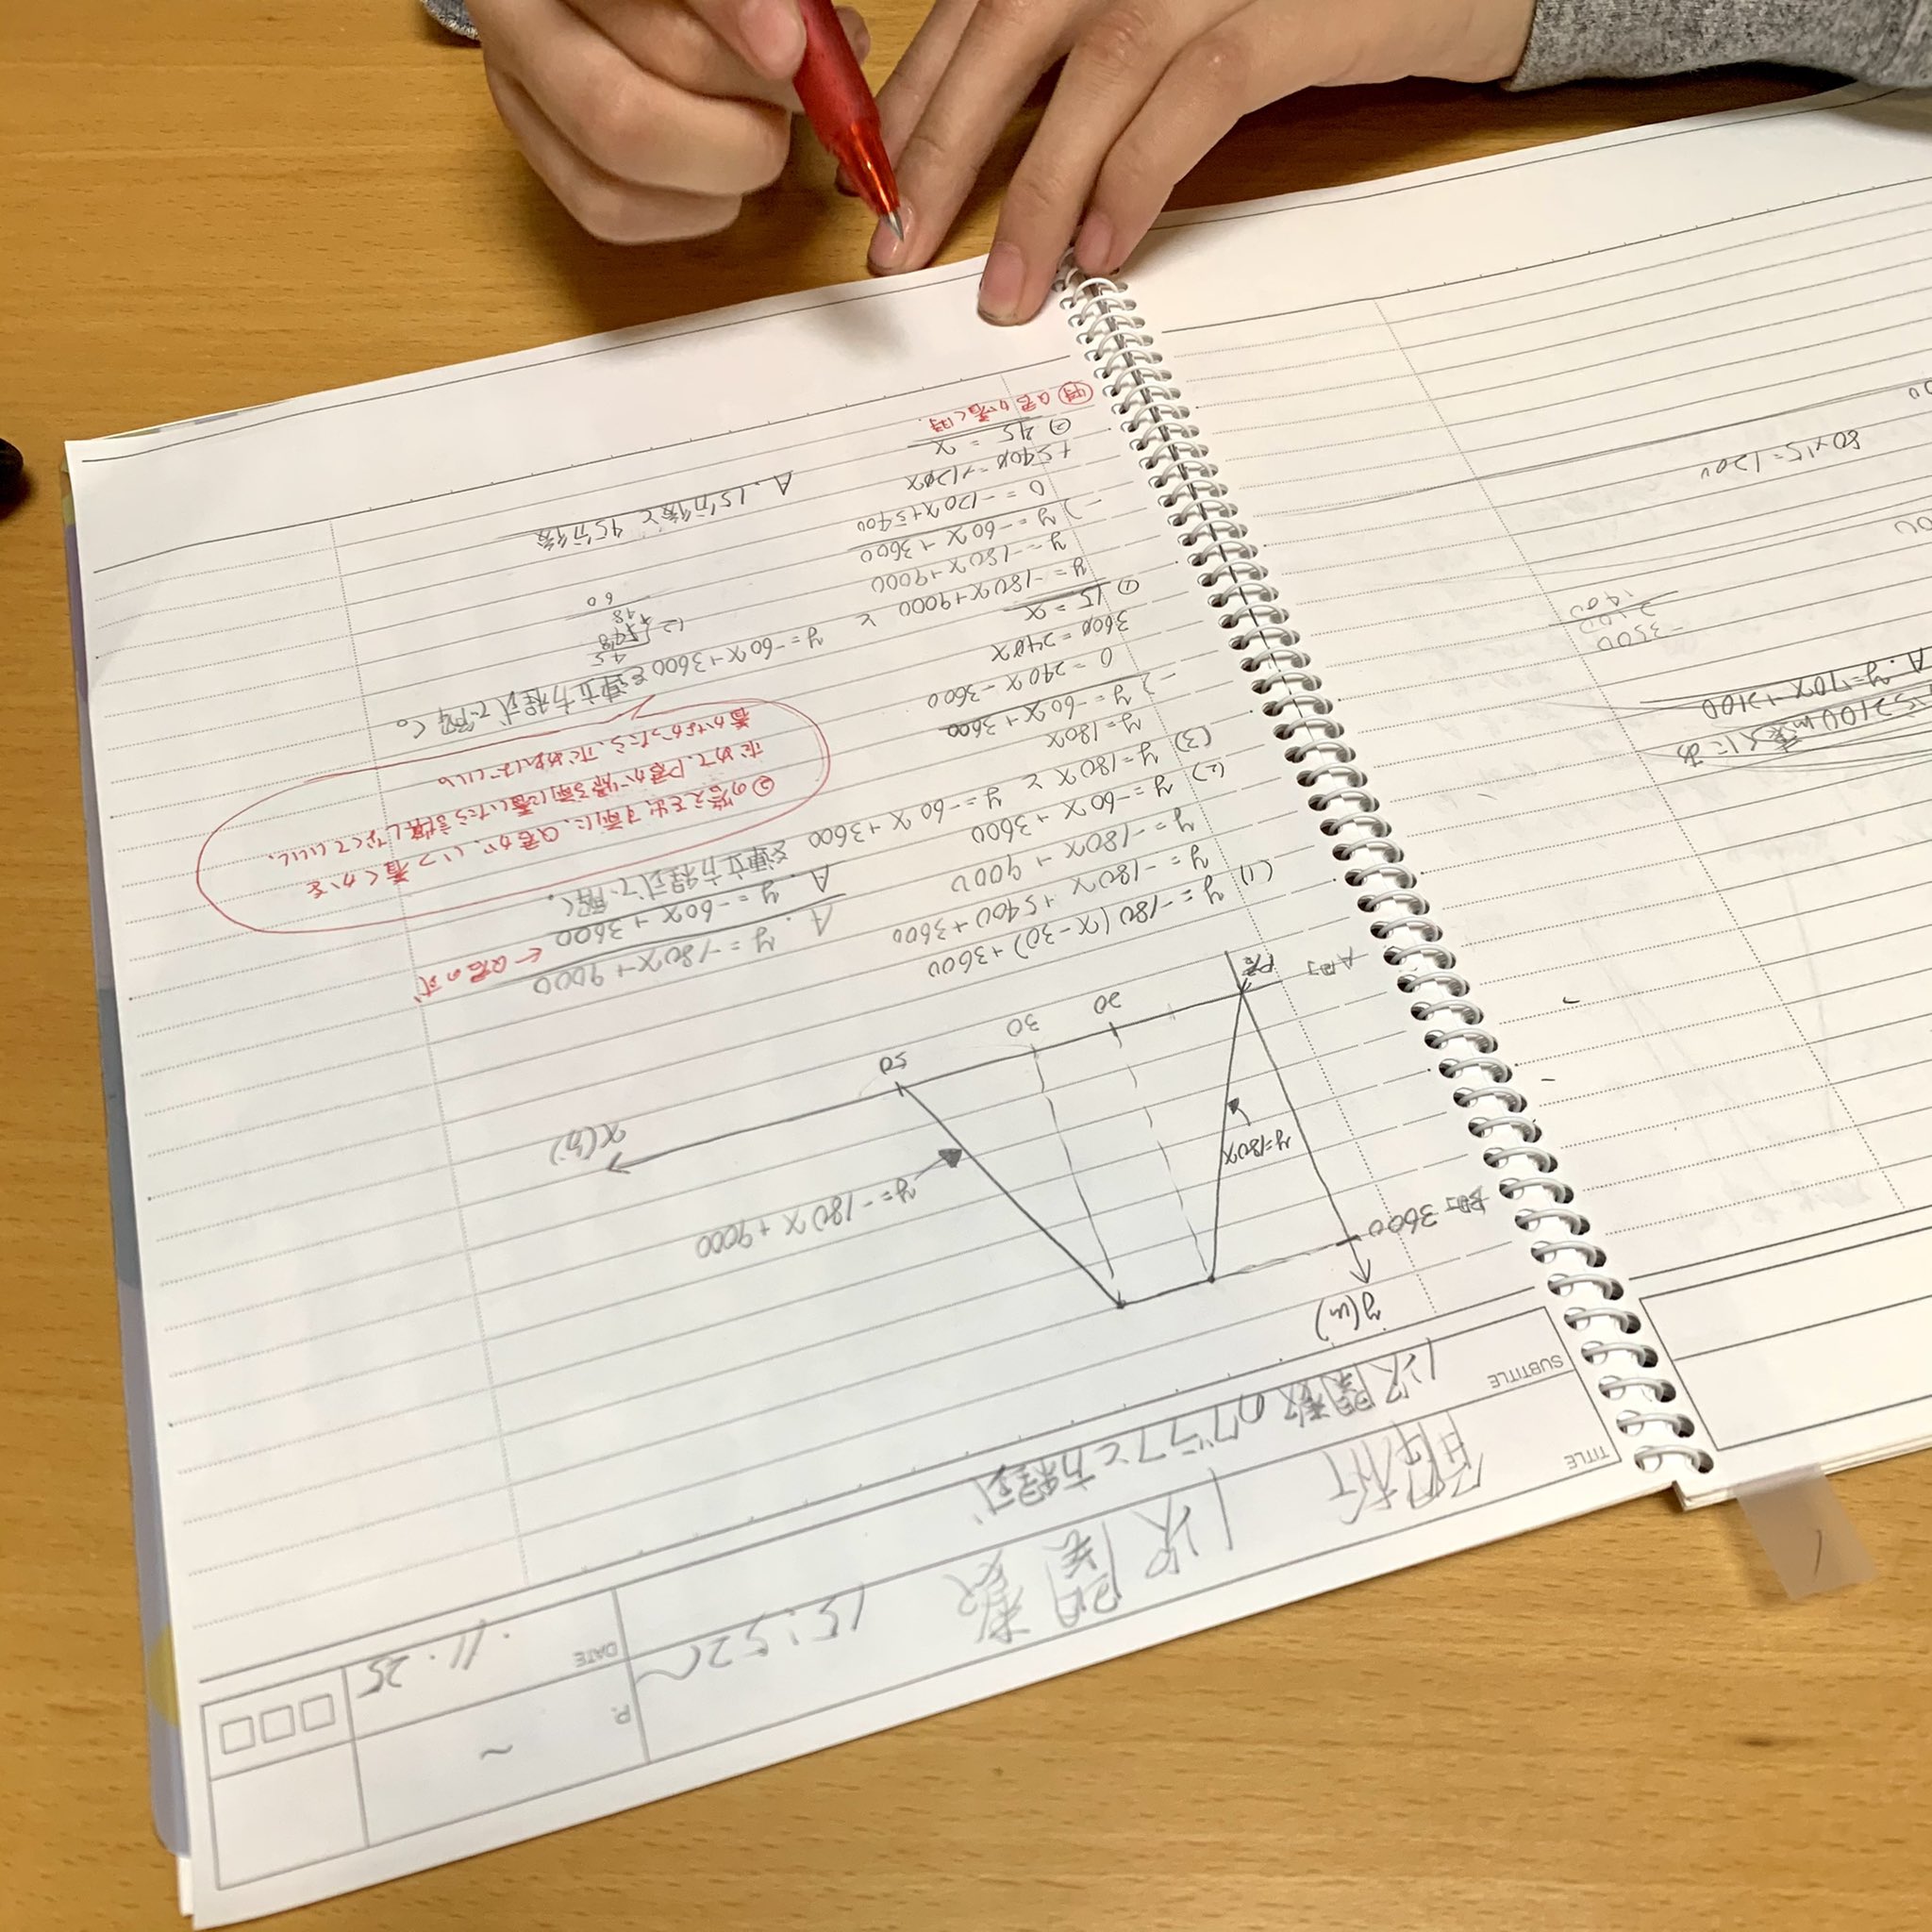 TITLE
解析 1次関数 15:52〜
P.
〜
SUBTITLE
1次関数のグラフと方程式
DATE
11・25
y(m)
B町 3600
y=180x
y=-180x+9000
20
30
50
x(分)
A町
(1) y=-180(x-30)+3600
y=-180x+5400+3600
y=-180x+9000
A. y=-180x+9000
(2) y=-60x+3600
A. y=-60x+3600
←Q君の式
(3) y=180x と y=-60x+3600 を連立方程式で解く。
y=180x
-) y=-60x+3600
0=240x-3600
3600=240x
① 15=x
②の答えを出す前に、Q君が、いつ着くかを
求めて、P君が帰る前に着いたら計算しなくていいし、
着かなかったら、求めればいい。
y=-180x+9000 と y=-60x+3600を連立方程式で解く。
y=-180x+9000
-) y=-60x+3600
0=-120x+5400
+5400=+120x
② 45=x
45
12)540
48
60
A. 15分後と45分後
Q君が着く時
A. y=70x+2100
-3500
2100
1400
80×15=1200
1